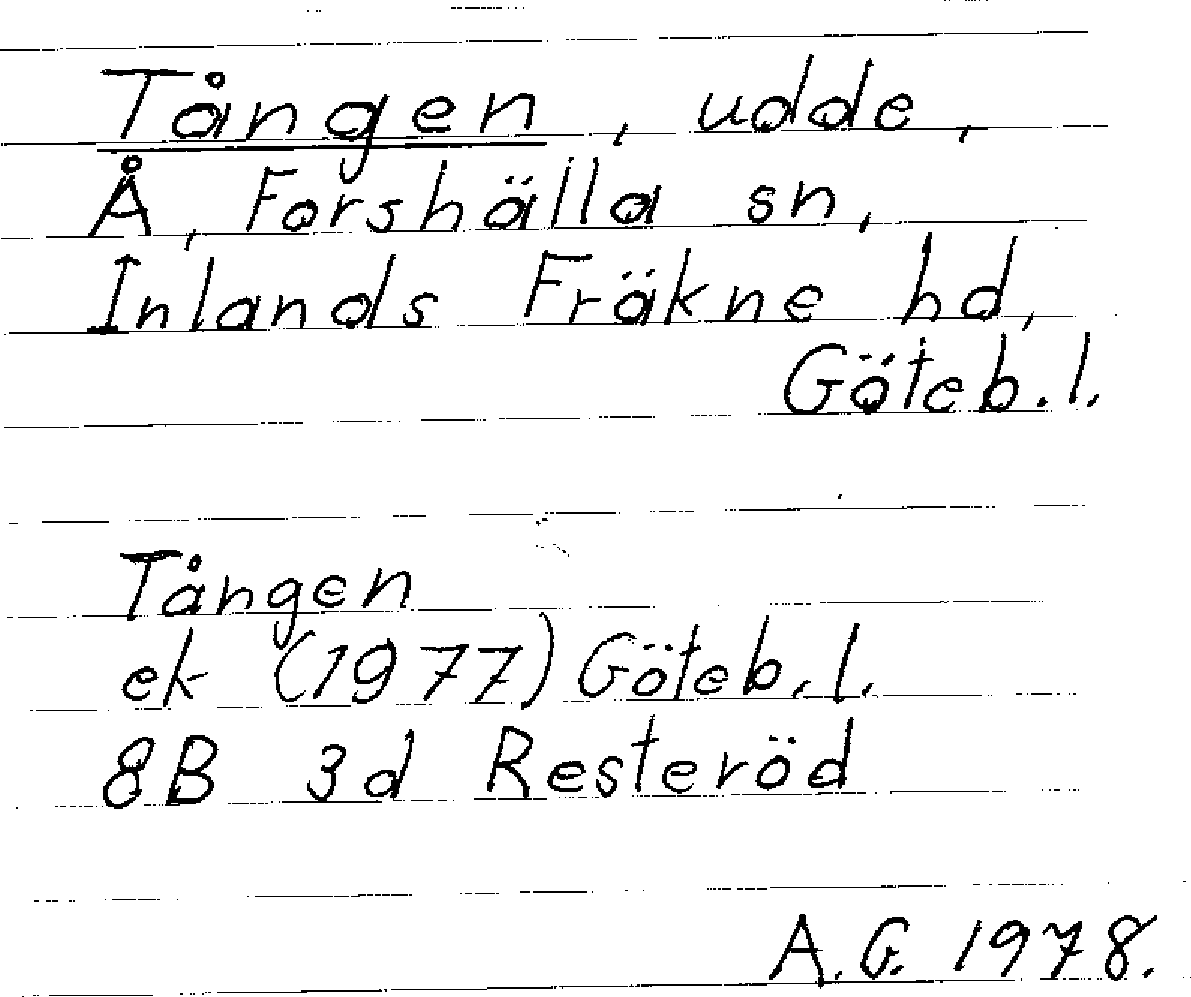 Tången, udde,
Å, Forshälla sn,
Inlands Fräkne hd,
Göteb. l.
Tången
ek (1977) Göteb. l.
8B 3d Resteröd
A.G. 1978.